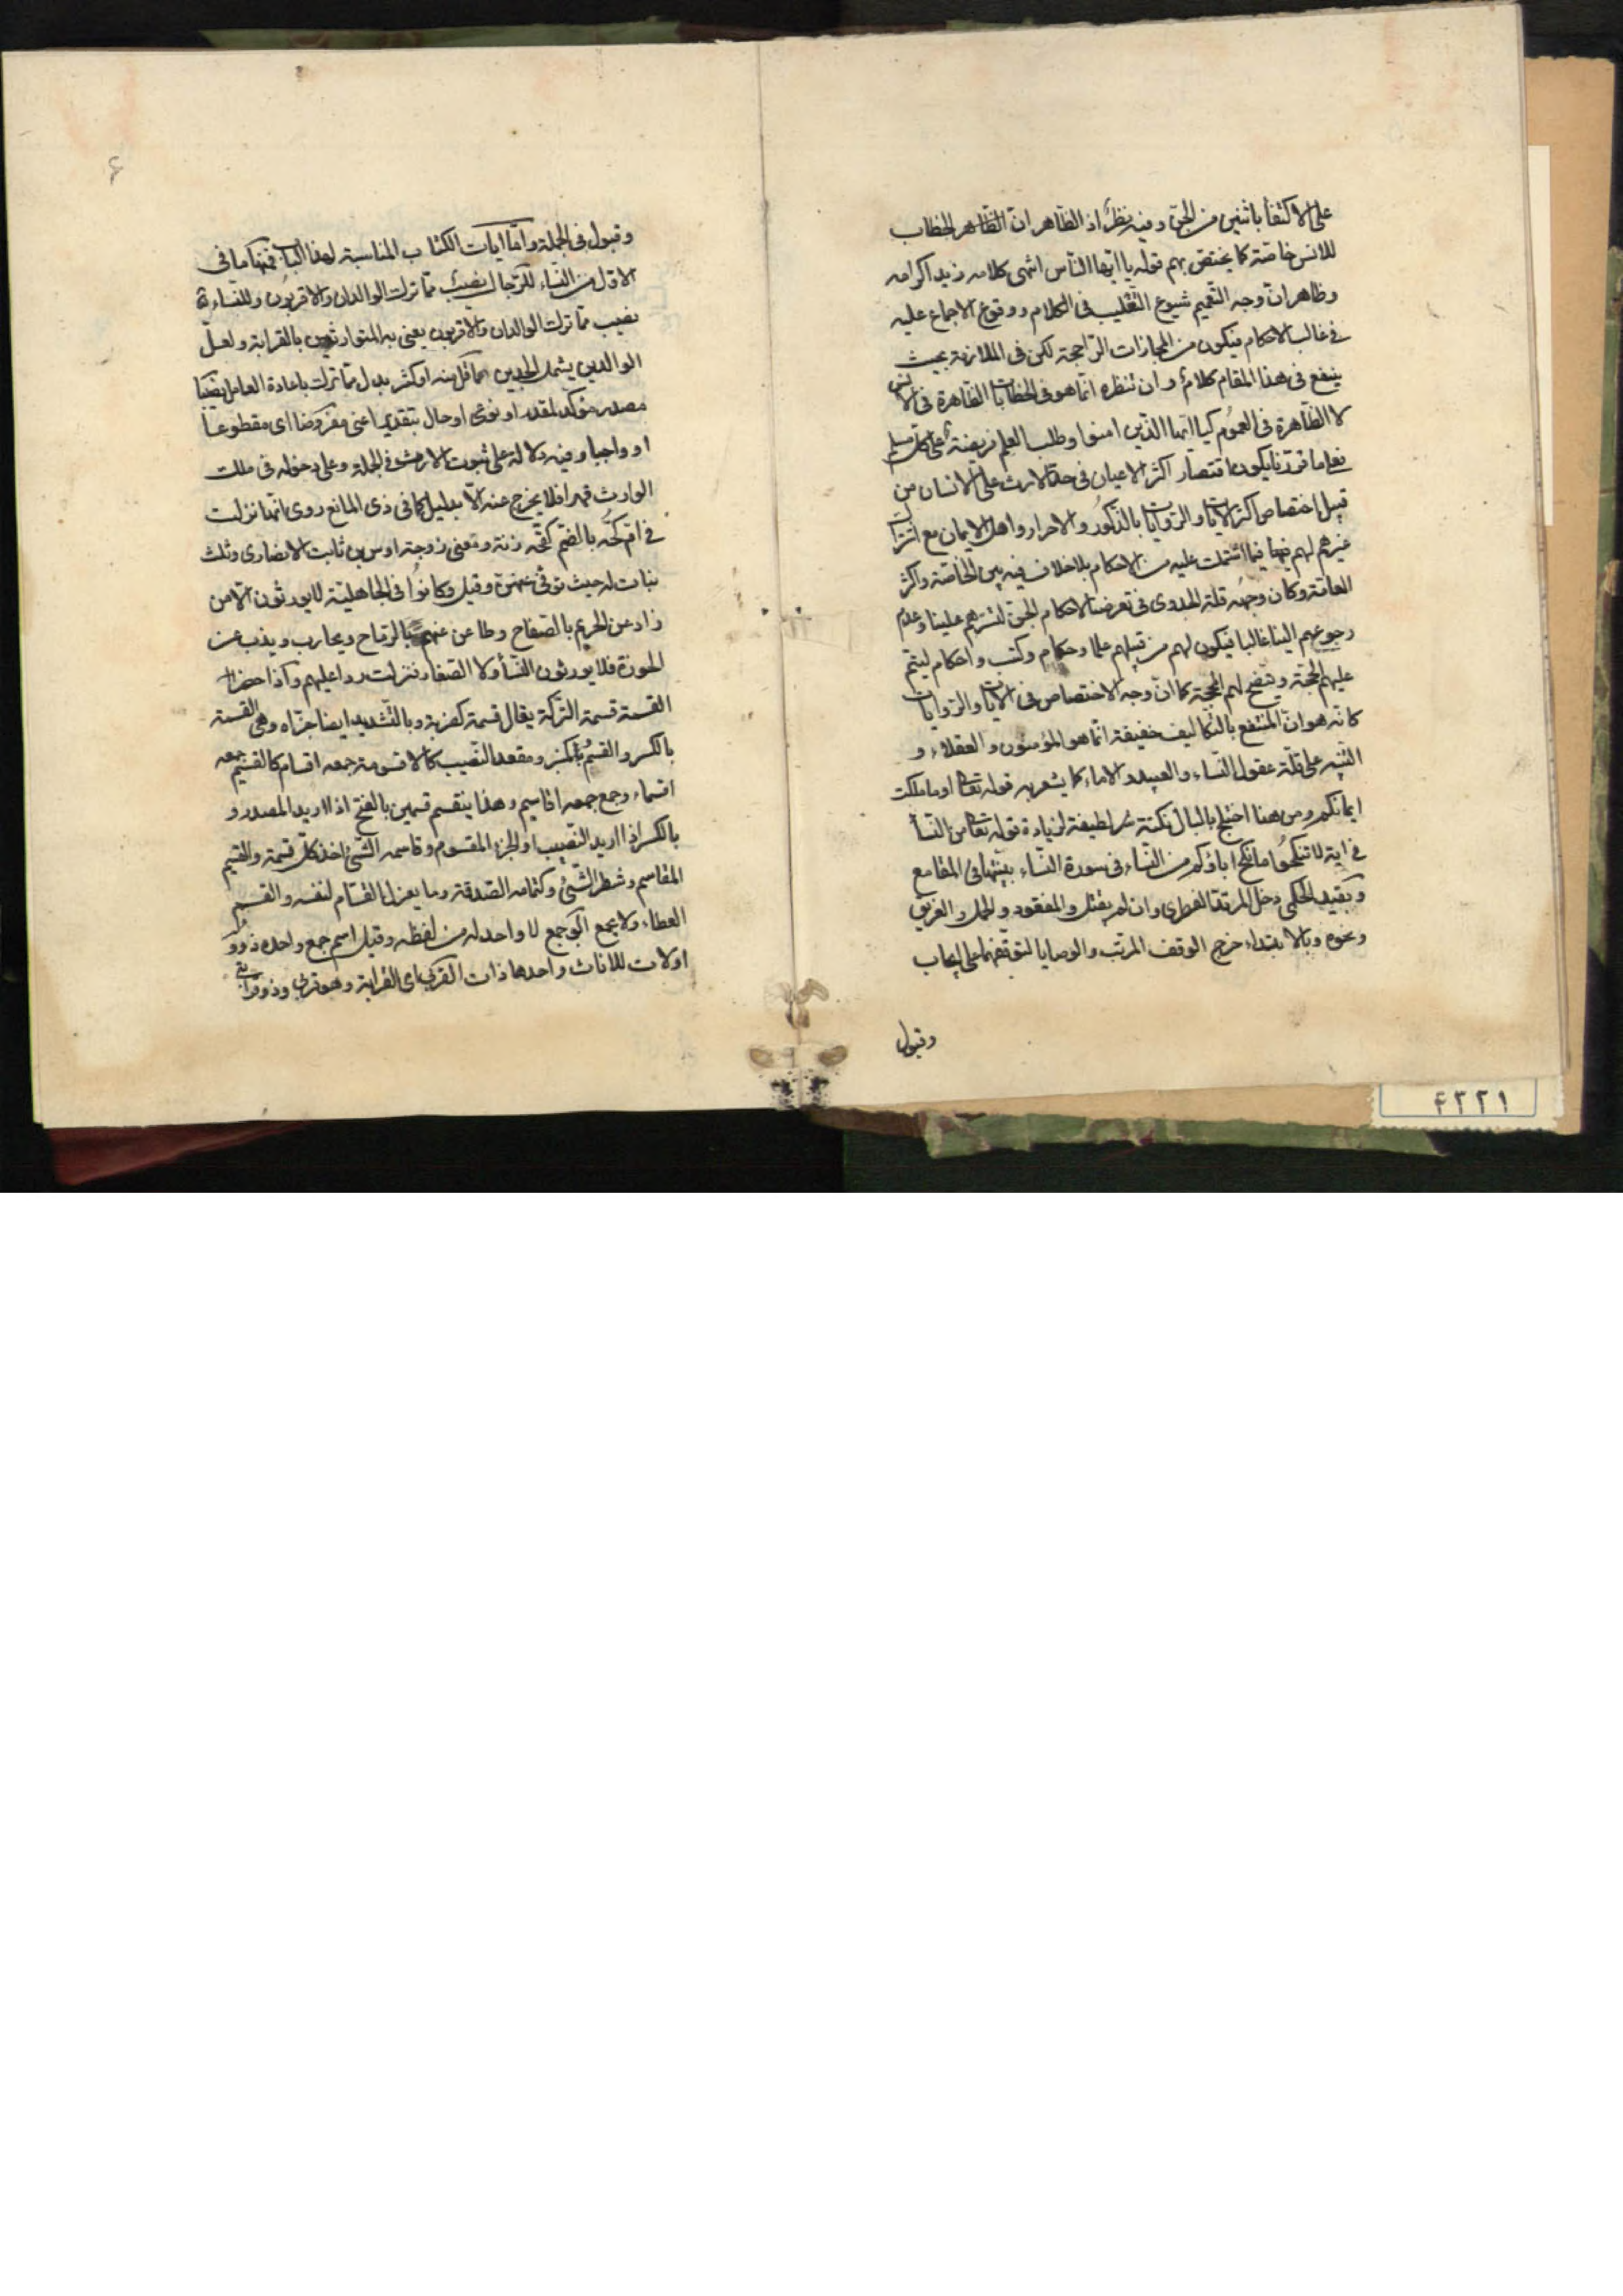 على الاكتفا باثنين من الجن وفيه نظر اذ الظاهر ان الظاهر الخطاب
للانس خاصة كما يختص بهم قوله يا ايها الناس انتهى كلامه زيد اكرامه
وظاهر ان وجه التعميم شيوع التغليب فى الكلام ووقوع الاجماع عليه
فى غالب الاحكام فيكون من المجازات الراجحة لكن فى الملازمة بحيث
ينفع فى هذا المقام كلام وان تنظره انما هو فى الخطابات الظاهرة فى الانس
لا الظاهرة فى العموم كيا ايها الذين امنوا وطلب العلم فريضة على كل مسلم
اقتصار اكثر الاعيان فى حد الارث على الانسان من
قبيل اختصاص اكثر الايات والروايات بالذكور والاحرار واهل الايمان مع
غيرهم لهم فيها فيما اشتملت عليه من الاحكام بلا خلاف فيه بين الخاصة واكثر
العامة وكان وجهه قلة الجدوى فى تعرضنا لاحكام الجن لتسترهم علينا وعدم
رجوعهم الينا غالبا فيكون لهم من قبيلهم علما وحكام وكتب واحكام ليتم
عليهم الحجة ويتضح لهم المحجة كما ان وجه الاختصاص فى الايات والروايات
كانه هو ان المنتفع بالتكاليف حقيقة انما هو المؤمنون والعقلاء و
التنبيه على قلة عقول النساء والعبيد والاماء كما يشعر به قوله تعالى او ما ملكت
ايمانكم ومن هنا اختلج بالبال نكتة لطيفة لزيادة قوله تعالى من النسا
فى اية لا تنكحوا ما نكح اباؤكم من النساء فى سورة النساء بينتها فى المقامع
وبقيد الحكمى دخل المرتد الفطرى وان لم يقتل والمفقود والحمل والغريق
ونحوه وبالابتداء خرج الوقف المرتب والوصايا لتوقفهما على ايجاب
وقبول
۴۲۲۱
۶
وقبول فى الجملة واما ايات الكتاب المناسبة لهذا الباب فمنها ما فى
الاول من النساء للرجال نصيب مما ترك الوالدان والاقربون وللنساء
نصيب مما ترك الوالدان والاقربون يعنى به المتوارثين بالقرابة ولعل
الوالدين يشمل الجدين مما قل منه او كثر بدل مما ترك باعادة العامل نصيبا
مصدر مؤكد لمقدر او نوعى او حال بتقدير اعنى مفروضا اى مقطوعا
او واجبا وفيه دلالة على ثبوت الارث فى الجملة وعلى دخوله فى ملك
الوارث قهرا فلا يخرج عنه الا بدليل كما فى ذى المانع روى انها نزلت
فى ام كحه بالضم كقحه زنة ومعنى زوجة اوس بن ثابت الانصارى وثلث
بنات له حيث توفى عنهن وقيل وكانوا فى الجاهلية لا يورثون الا من
زاد عن الحريم بالصفاح وطاعن عنهم بالرماح ويحارب ويذب عن
الحوزة فلا يورثون النسأ ولا الصغار فنزلت ردا عليهم واذا حضر
القسمة قسمة التركة يقال قسمة كضربه وبالتشديد ايضا جزاه وهى القسمة
بالكسر والقسم ومقعد النصيب كالاقسومة جمعه اقسام كالقسيم جمعه
اقسماء وجمع جمعه اقاسيم وهذا ينقسم قسمين بالفتح اذا اريد المصدر و
بالكسر اذا اريد النصيب او الجزء المقسوم وقاسمه الشئ اخذ كل قسمة والقسيم
المقاسم وشطر الشئ وكثمامه الصدقة وما يعزله القسام لنفسه والقسم
العطاء ولا يجمع اولو جمع لا واحد له من لفظه وقيل اسم جمع واحده ذو و
اولات للاناث واحدها ذات القربى اى القرابة وهو قريبى وذو قرابتى